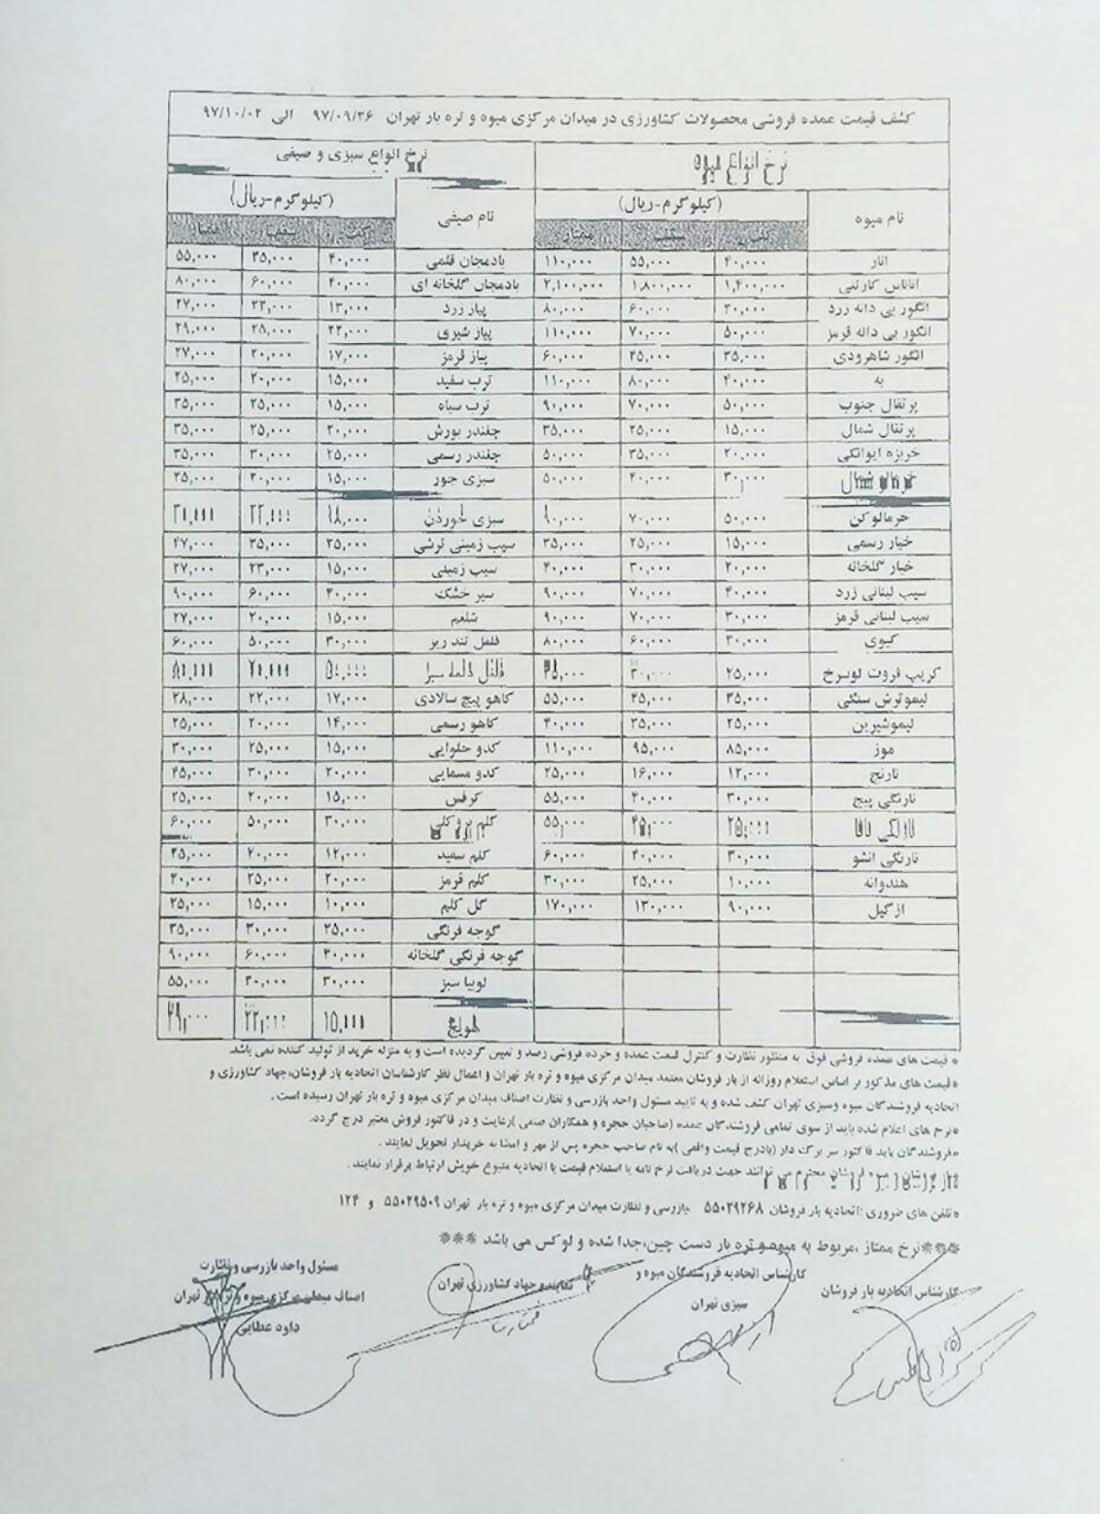 کشف قیمت عمده فروشی محصولات کشاورزی در میدان مرکزی میوه و تره بار تهران ۹۷/۰۹/۲۶ الی ۹۷/۱۰/۰۲
نرخ انواع میوه نرخ انواع سبزی و صیفی
نام میوه (کیلوگرم-ریال) نام صیفی (کیلوگرم-ریال)
ممتاز
انار ۴۰,۰۰۰ ۵۵,۰۰۰ ۱۱۰,۰۰۰ بادمجان قلمی ۳۵,۰۰۰ ۵۵,۰۰۰
آناناس کارتنی ۱,۴۰۰,۰۰۰ ۱,۸۰۰,۰۰۰ ۲,۱۰۰,۰۰۰ بادمجان گلخانه ای ۴۰,۰۰۰ ۶۰,۰۰۰ ۸۰,۰۰۰
انگور بی دانه زرد ۶۰,۰۰۰ ۸۰,۰۰۰ پیاز زرد ۱۳,۰۰۰ ۲۷,۰۰۰
انگور بی دانه قرمز ۵۰,۰۰۰ ۷۰,۰۰۰ ۱۱۰,۰۰۰ پیاز شیری ۲۲,۰۰۰ ۲۵,۰۰۰ ۲۹,۰۰۰
انگور شاهرودی ۳۵,۰۰۰ ۶۰,۰۰۰ پیاز قرمز ۱۷,۰۰۰ ۲۰,۰۰۰ ۲۷,۰۰۰
به ۴۰,۰۰۰ ۸۰,۰۰۰ ۱۱۰,۰۰۰ ترب سفید ۱۵,۰۰۰ ۲۰,۰۰۰ ۲۵,۰۰۰
پرتقال جنوب ۵۰,۰۰۰ ۷۰,۰۰۰ ۹۰,۰۰۰ ترب سیاه ۱۵,۰۰۰ ۲۵,۰۰۰ ۳۵,۰۰۰
پرتقال شمال ۱۵,۰۰۰ ۲۵,۰۰۰ ۳۵,۰۰۰ چغندر بورش ۲۰,۰۰۰ ۲۵,۰۰۰ ۳۵,۰۰۰
خربزه ایوانکی ۲۰,۰۰۰ ۳۵,۰۰۰ ۵۰,۰۰۰ چغندر رسمی ۲۵,۰۰۰ ۳۰,۰۰۰ ۳۵,۰۰۰
خرمالو شمال ۳۰,۰۰۰ ۴۰,۰۰۰ ۵۰,۰۰۰ سبزی جور ۱۵,۰۰۰ ۲۰,۰۰۰ ۲۵,۰۰۰
خرمالوکن ۵۰,۰۰۰ ۷۰,۰۰۰ سبزی خوردن ۱۸,۰۰۰
خیار رسمی ۱۵,۰۰۰ ۲۵,۰۰۰ ۳۵,۰۰۰ سیب زمینی ترشی ۲۵,۰۰۰ ۳۵,۰۰۰ ۴۷,۰۰۰
خیار گلخانه ۲۰,۰۰۰ ۳۰,۰۰۰ ۴۰,۰۰۰ سیب زمینی ۱۵,۰۰۰ ۲۳,۰۰۰ ۲۷,۰۰۰
سیب لبنانی زرد ۴۰,۰۰۰ ۷۰,۰۰۰ ۹۰,۰۰۰ سیر خشک ۶۰,۰۰۰ ۹۰,۰۰۰
سیب لبنانی قرمز ۷۰,۰۰۰ ۹۰,۰۰۰ شلغم ۱۵,۰۰۰ ۲۰,۰۰۰ ۲۷,۰۰۰
کیوی ۶۰,۰۰۰ ۸۰,۰۰۰ فلفل تند ریز ۳۰,۰۰۰ ۵۰,۰۰۰ ۶۰,۰۰۰
گریپ فروت توسرخ ۲۵,۰۰۰ فلفل دلمه سبز
لیموترش سنگی ۳۵,۰۰۰ ۴۵,۰۰۰ ۵۵,۰۰۰ کاهو پیچ سالادی ۱۷,۰۰۰ ۲۲,۰۰۰ ۲۸,۰۰۰
لیموشیرین ۲۵,۰۰۰ ۳۵,۰۰۰ ۴۰,۰۰۰ کاهو رسمی ۱۴,۰۰۰ ۲۰,۰۰۰ ۲۵,۰۰۰
موز ۸۵,۰۰۰ ۹۵,۰۰۰ ۱۱۰,۰۰۰ کدو حلوایی ۱۵,۰۰۰ ۲۵,۰۰۰ ۳۰,۰۰۰
نارنج ۱۲,۰۰۰ ۱۶,۰۰۰ ۲۵,۰۰۰ کدو مسمایی ۲۰,۰۰۰ ۳۰,۰۰۰ ۴۵,۰۰۰
نارنگی پیج ۳۰,۰۰۰ ۴۰,۰۰۰ ۵۵,۰۰۰ کرفس ۱۵,۰۰۰ ۲۰,۰۰۰ ۲۵,۰۰۰
نارنگی یافا ۵۵,۰۰۰ کلم بروکلی ۳۰,۰۰۰ ۵۰,۰۰۰ ۶۰,۰۰۰
نارنگی انشو ۳۰,۰۰۰ ۴۰,۰۰۰ ۶۰,۰۰۰ کلم سفید ۱۲,۰۰۰ ۲۰,۰۰۰ ۲۵,۰۰۰
هندوانه ۱۰,۰۰۰ ۲۵,۰۰۰ ۳۰,۰۰۰ کلم قرمز ۲۰,۰۰۰ ۲۵,۰۰۰
ازگیل ۹۰,۰۰۰ ۱۳۰,۰۰۰ ۱۷۰,۰۰۰ گل کلم ۱۰,۰۰۰ ۱۵,۰۰۰ ۲۵,۰۰۰
گوجه فرنگی ۲۵,۰۰۰ ۳۰,۰۰۰ ۳۵,۰۰۰
گوجه فرنگی گلخانه ۶۰,۰۰۰ ۹۰,۰۰۰
لوبیا سبز ۳۰,۰۰۰ ۵۵,۰۰۰
هویج
* قیمت های عمده فروشی فوق به منظور نظارت و کنترل قیمت عمده و خرده فروشی رصد و تعیین گردیده است و به منزله خرید از تولید کننده نمی باشد.
*قیمت های مذکور بر اساس استعلام روزانه از بار فروشان معتمد میدان مرکزی میوه و تره بار تهران و اعمال نظر کارشناسان اتحادیه بار فروشان،جهاد کشاورزی و
اتحادیه فروشندگان میوه وسبزی تهران کشف شده و به تایید مسئول واحد بازرسی و نظارت اصناف میدان مرکزی میوه و تره بار تهران رسیده است .
*نرخ های اعلام شده باید از سوی تمامی فروشندگان عمده (صاحبان حجره و همکاران صنفی )رعایت و در فاکتور فروش معتبر درج گردد.
*فروشندگان باید فاکتور سر برگ دار (بادرج قیمت واقعی )به نام صاحب حجره پس از مهر و امضا به خریدار تحویل نمایند .
میوه فروشان محترم می توانند جهت دریافت نرخ نامه یا استعلام قیمت با اتحادیه متبوع خویش ارتباط برقرار نمایند .
*تلفن های ضروری :اتحادیه بار فروشان ۵۵۰۲۹۲۶۸ بازرسی و نظارت میدان مرکزی میوه و تره بار تهران ۵۵۰۲۹۵۰۹ و ۱۲۴
***نرخ ممتاز ،مربوط به میوه و تره بار دست چین،جدا شده و لوکس می باشد ***
کارشناس اتحادیه بار فروشان کارشناس اتحادیه فروشندگان میوه و نماینده جهاد کشاورزی تهران مسئول واحد بازرسی و نظارت
سبزی تهران اصناف میدان مرکزی میوه و تره بار تهران
داود عطایی